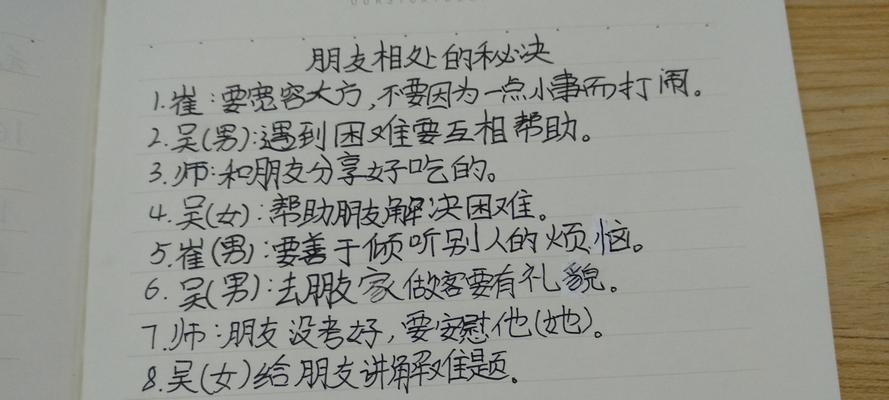 朋友相处的秘决
1.崔:要宽容大方,不要因为一点小事而打闹。
2.吴(男):遇到困难要互相帮助。
3.师:和朋友分享好吃的。
4.吴(女):帮助朋友解决困难。
5.崔(男):要善于倾听别人的烦恼。
6.吴(男):去朋友家做客要有礼貌。
7.师:朋友没考好,要安慰他(她)。
8.吴(女)给朋友讲解难题。